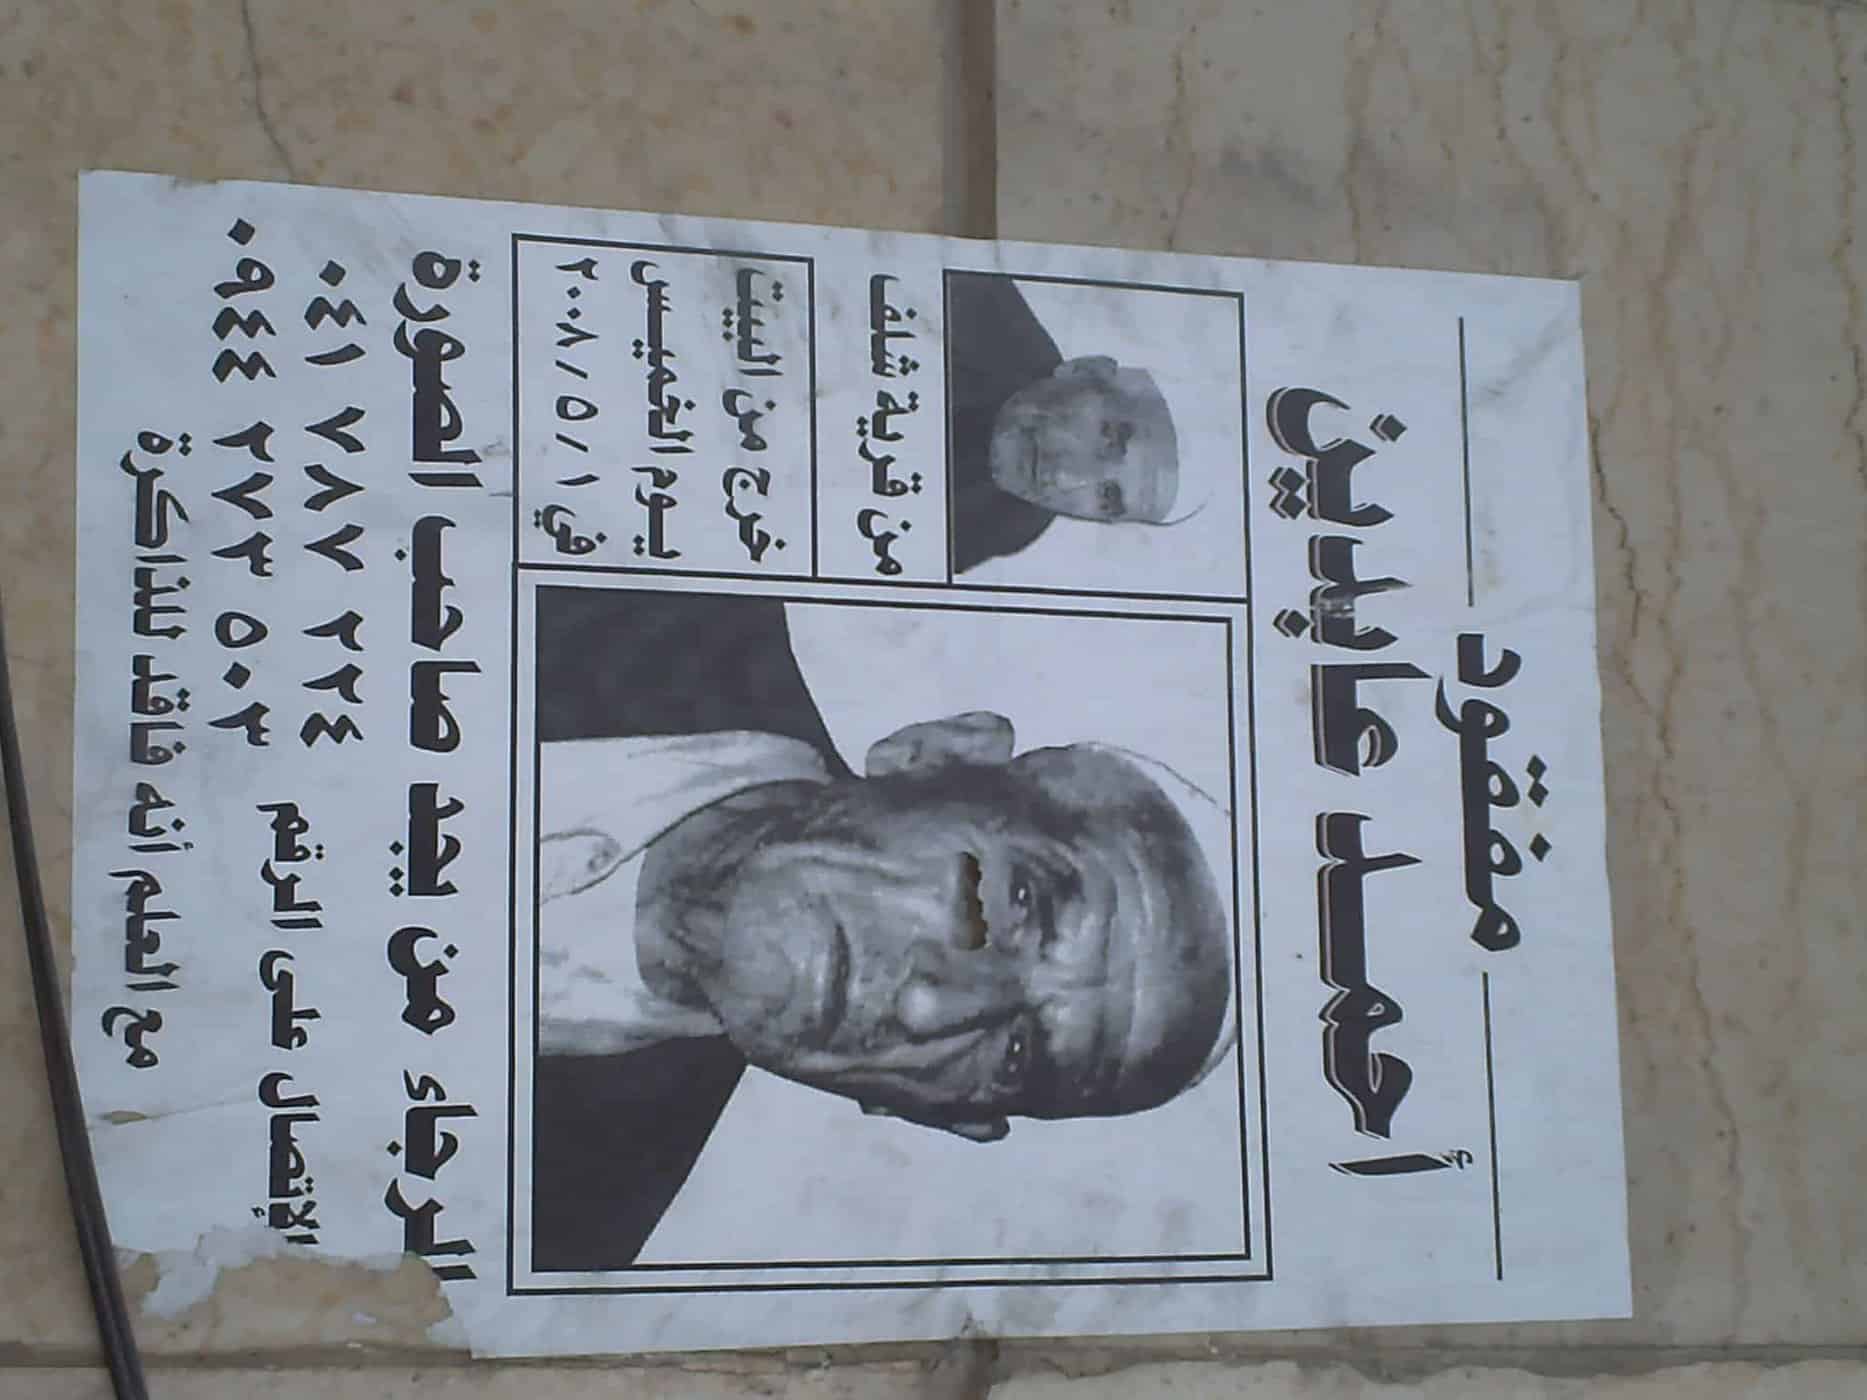 مفقود
أحمد عابدين
من قرية شلف
خرج من البيت
يوم الخميس
في ٢٠٠٨/٥/١
الرجاء من يجد صاحب الصورة
الإتصال على الرقم
٠٤١ ٧٨٧ ٢٢٤
٠٩٤٤ ٢٧٣ ٥٠٣
مع العلم أنه فاقد للذاكرة